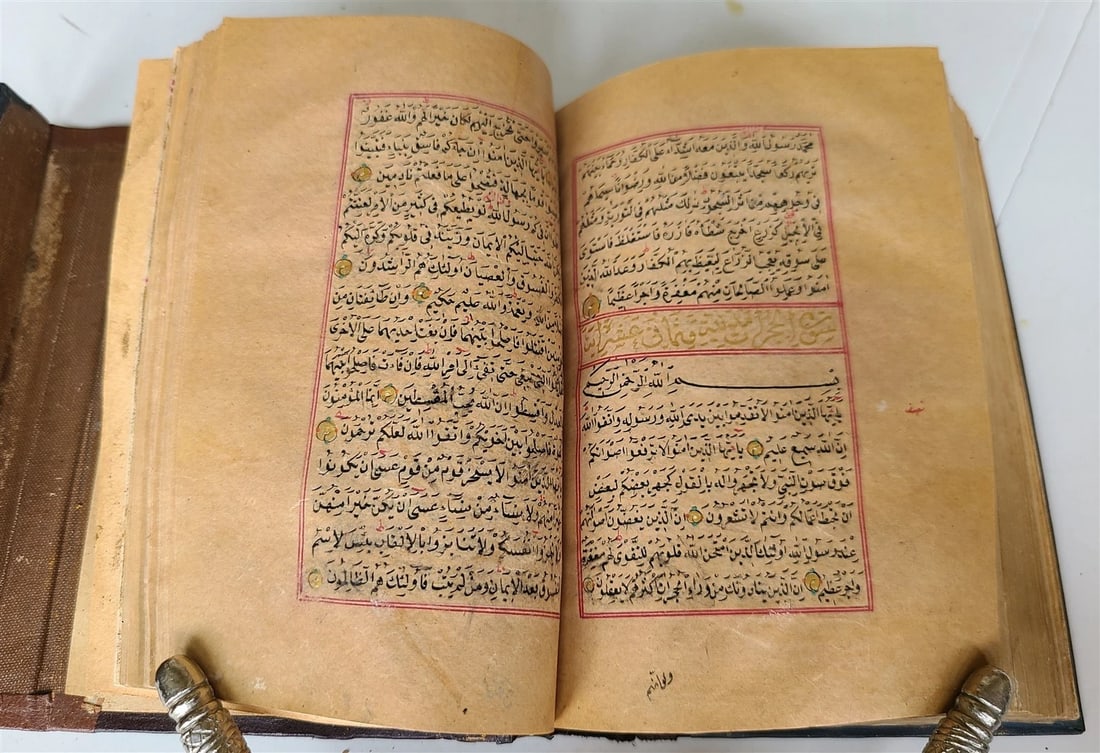 محمد رسول الله والذين معه اشداء على الكفار رحماء بينهم
تريهم ركعا سجدا يبتغون فضلا من الله ورضوانا سيماهم
في وجوههم من اثر السجود ذلك مثلهم في التورية ومثلهم
في الانجيل كزرع اخرج شطأه فازره فاستغلظ فاستوى
على سوقه يعجب الزراع ليغيظ بهم الكفار وعد الله الذين
امنوا وعملوا الصالحات منهم مغفرة واجرا عظيما
سورة الحجرات مدنية وهي ثماني عشر آية
بسم الله الرحمن الرحيم
يا ايها الذين امنوا لا تقدموا بين يدي الله ورسوله واتقوا الله
ان الله سميع عليم يا ايها الذين امنوا لا ترفعوا اصواتكم
فوق صوت النبي ولا تجهروا له بالقول كجهر بعضكم لبعض
ان تحبط اعمالكم وانتم لا تشعرون ان الذين يغضون اصواتهم
عند رسول الله اولئك الذين امتحن الله قلوبهم للتقوى لهم مغفرة
واجر عظيم ان الذين ينادونك من وراء الحجرات اكثرهم لا يعقلون
ولو انهم
حتى تخرج اليهم لكان خيرا لهم والله غفور
يا ايها الذين امنوا ان جاءكم فاسق بنباء فتبينوا
قوما بجهالة فتصبحوا على ما فعلتم نادمين
فيكم رسول الله لو يطيعكم في كثير من الامر لعنتم
حبب اليكم الايمان وزينه في قلوبكم وكره اليكم
الفسوق والعصيان اولئك هم الراشدون
الله ونعمة والله عليم حكيم وان طائفتان من
اقتتلوا فاصلحوا بينهما فان بغت احديهما على الاخرى
التي تبغي حتى تفيء الى امر الله فان فاءت فاصلحوا بينهما
واقسطوا ان الله يحب المقسطين انما المؤمنون
فاصلحوا بين اخويكم واتقوا الله لعلكم ترحمون
الذين امنوا لا يسخر قوم من قوم عسى ان يكونوا
ولا نساء من نساء عسى ان يكن خيرا منهن
انفسكم ولا تنابزوا بالالقاب بئس الاسم
الفسوق بعد الايمان ومن لم يتب فاولئك هم الظالمون